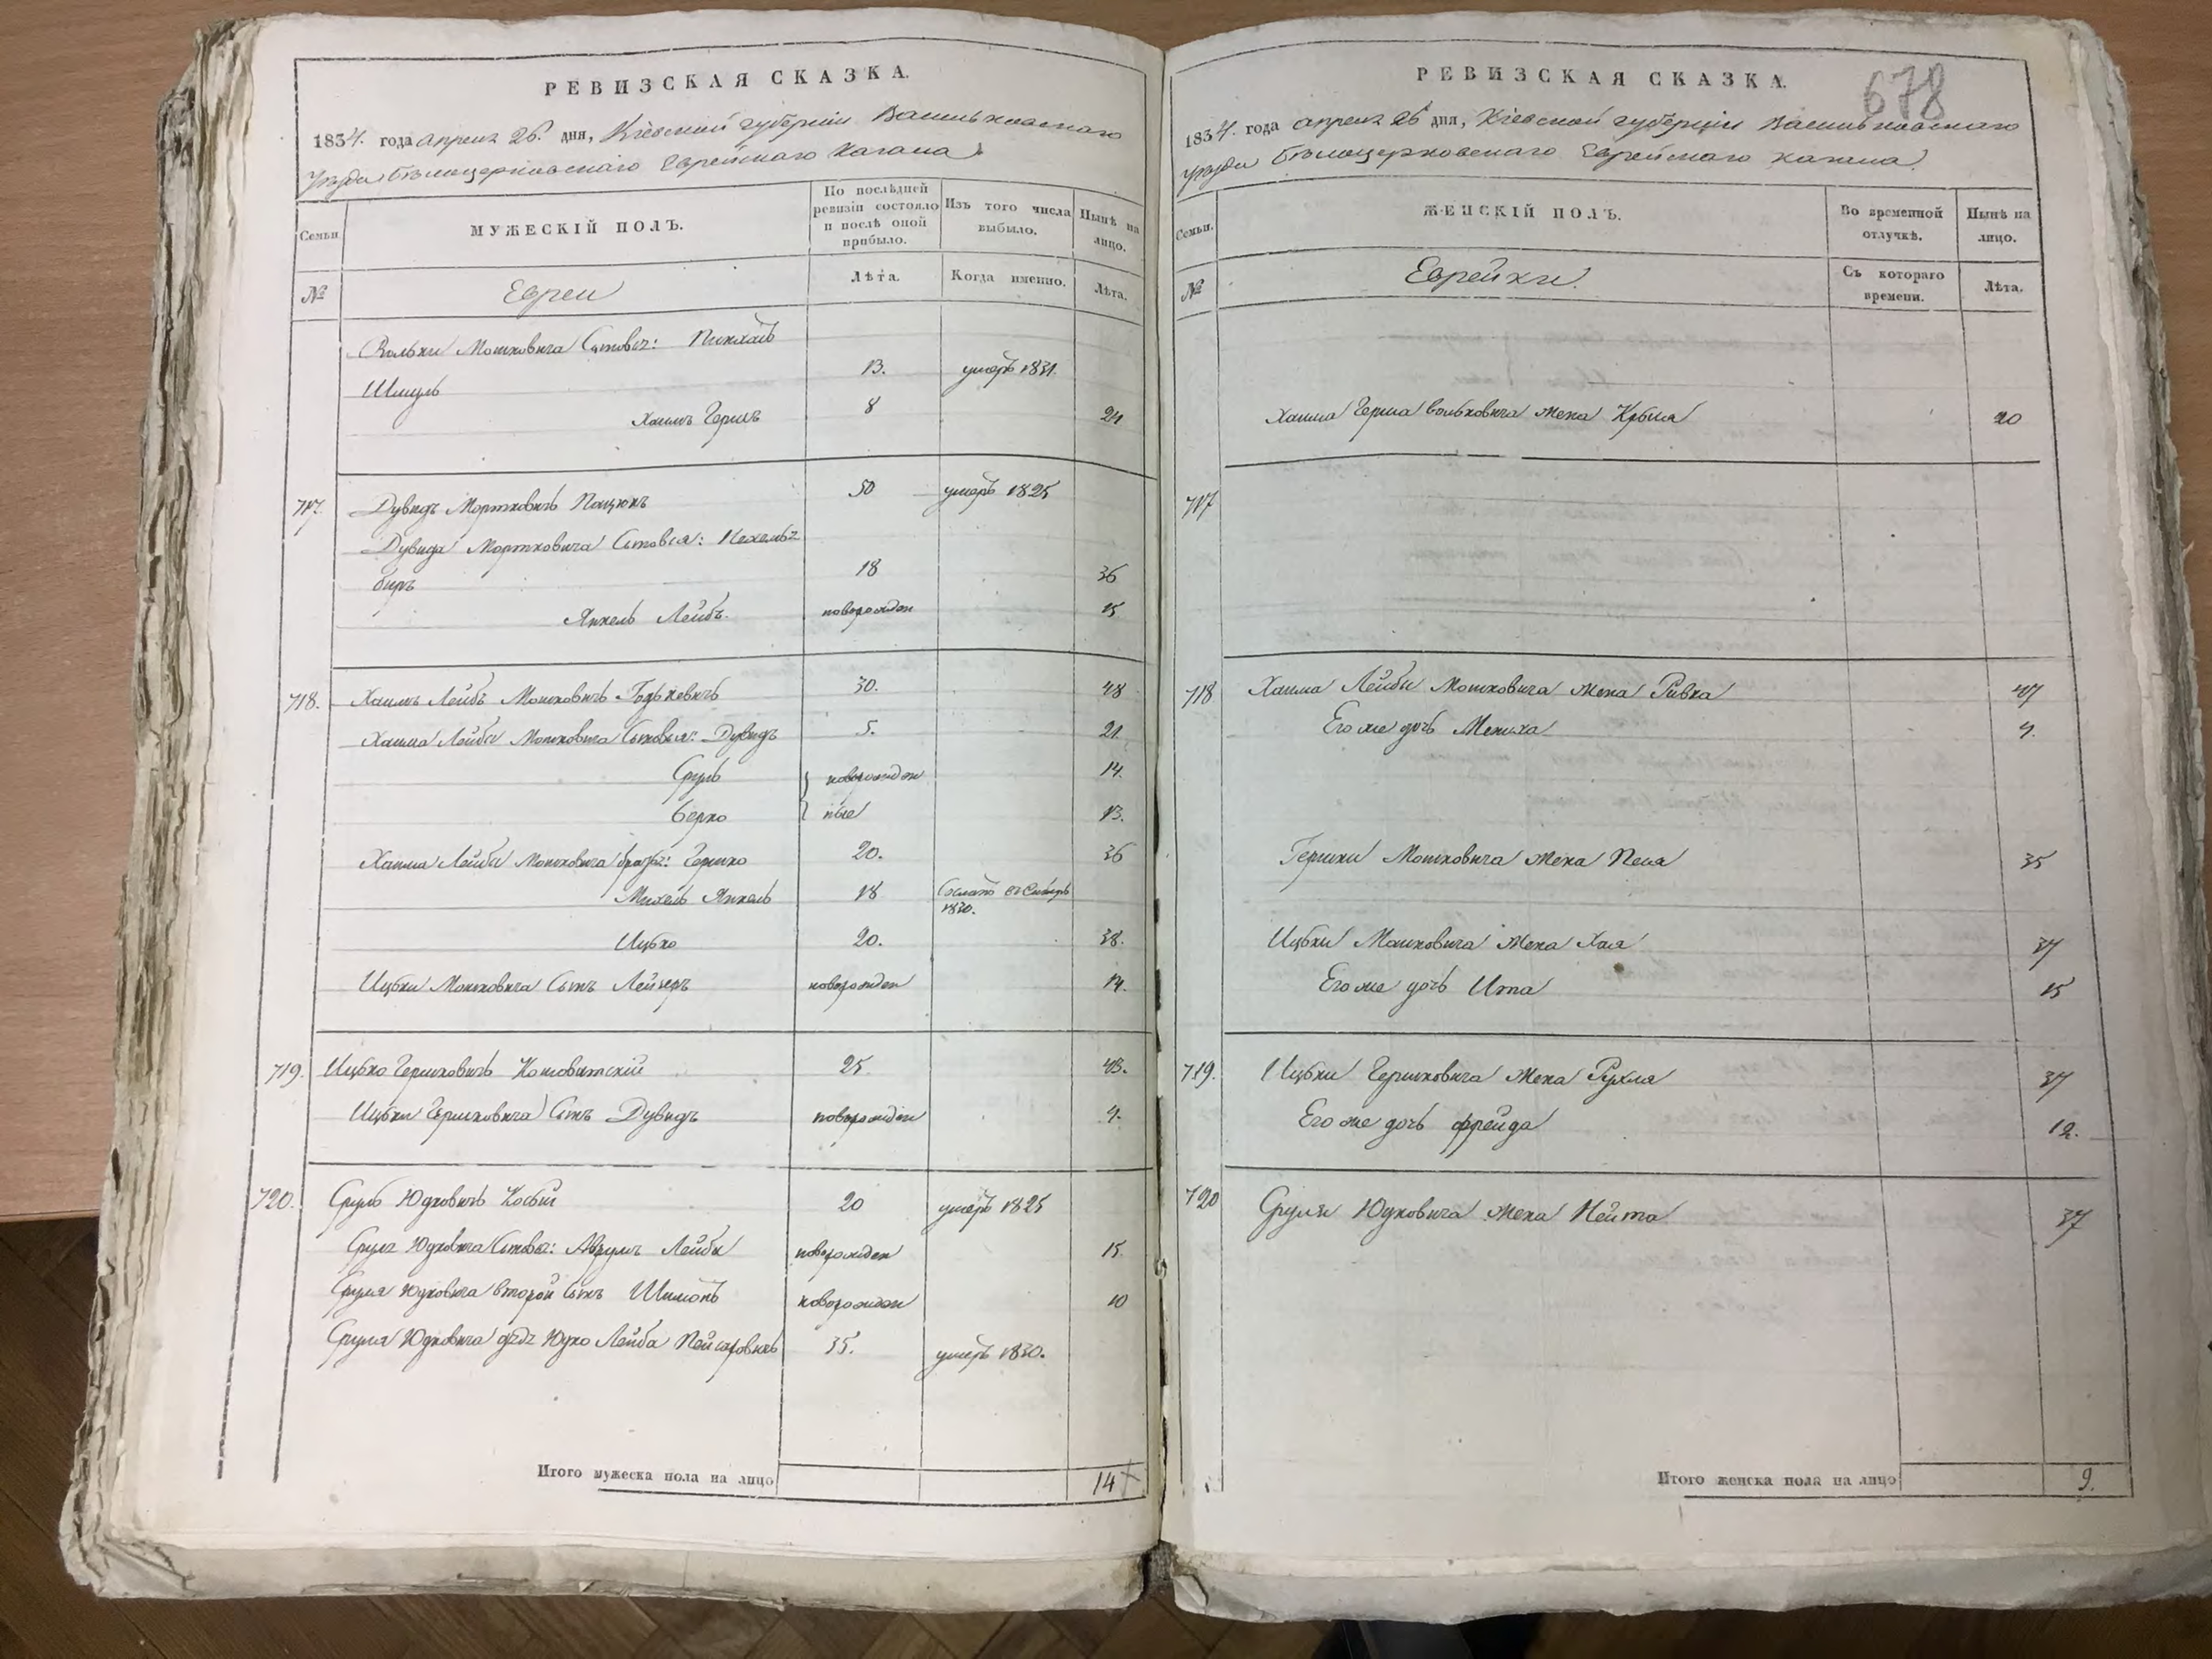 РЕВИЗСКАЯ СКАЗКА.
1834. года апреля 26. дня, Кіевской губерніи Васильковскаго
уѣзда Бѣлоцерковскаго Еврейскаго кагала
Семьи.
МУЖЕСКІЙ ПОЛЪ.
По послѣдней ревизіи состояло и послѣ оной прибыло.
Изъ того числа выбыло.
Нынѣ на лицо.
№
Евреи
Лѣта.
Когда именно.
Лѣта.
Вольки Мошковича Сыновья: Пинхасъ
Шмуль 13. умеръ 1831.
Хаимъ Гершъ 8 24
717. Дувидъ Мортковичъ 50 умеръ 1825
Дувида Мортковича Сыновья:
18 36
Янкель Лейбъ. новорожден 15
718. Хаимъ Лейбъ Мошковичъ 30. 48
Хаима Лейбы Мошковича Сыновья: Дувидъ 5. 21
Сруль } новорожден 14.
Берко } ные 13.
Хаима Лейбы Мошковича братья: Гершко 20. 36
Михель Янкель 18 Сосланъ въ Сибирь 1830.
Ицько 20. 38.
Ицьки Мошковича Сынъ Лейзеръ новорожден 14.
719. Ицько Гершковичъ 25. 43.
Ицьки Гершковича Сынъ Дувидъ новорожден 4.
720. Сруль Юдковичъ 20 умеръ 1825
Сруля Юдковича Сыновья: Аврумъ Лейбъ новорожден 15.
Сруля Юдковича второй Сынъ Шимонъ новорожден 10
Сруля Юдковича дядя Юдко Лейба 35. умеръ 1830.
Итого мужеска пола на лицо 14
РЕВИЗСКАЯ СКАЗКА.
678
1834. года апреля 26 дня, Кіевской губерніи Васильковскаго
уѣзда Бѣлоцерковскаго Еврейскаго кагала
Семьи.
ЖЕНСКІЙ ПОЛЪ.
Во временной отлучкѣ.
Нынѣ на лицо.
№
Еврейки.
Съ котораго времени.
Лѣта.
Хаима Герша Вольковича жена 20
717
718 Хаима Лейбы Мошковича жена Ривка 47
Его же дочь Мениха 9.
Гершки Мошковича жена Песя 35
Ицьки Мошковича жена Хая 37
Его же дочь Ита 15
719. Ицьки Гершковича жена Рухля 37
Его же дочь Фрейда 12.
720 Сруля Юдковича жена 37
Итого женска пола на лицо 9.